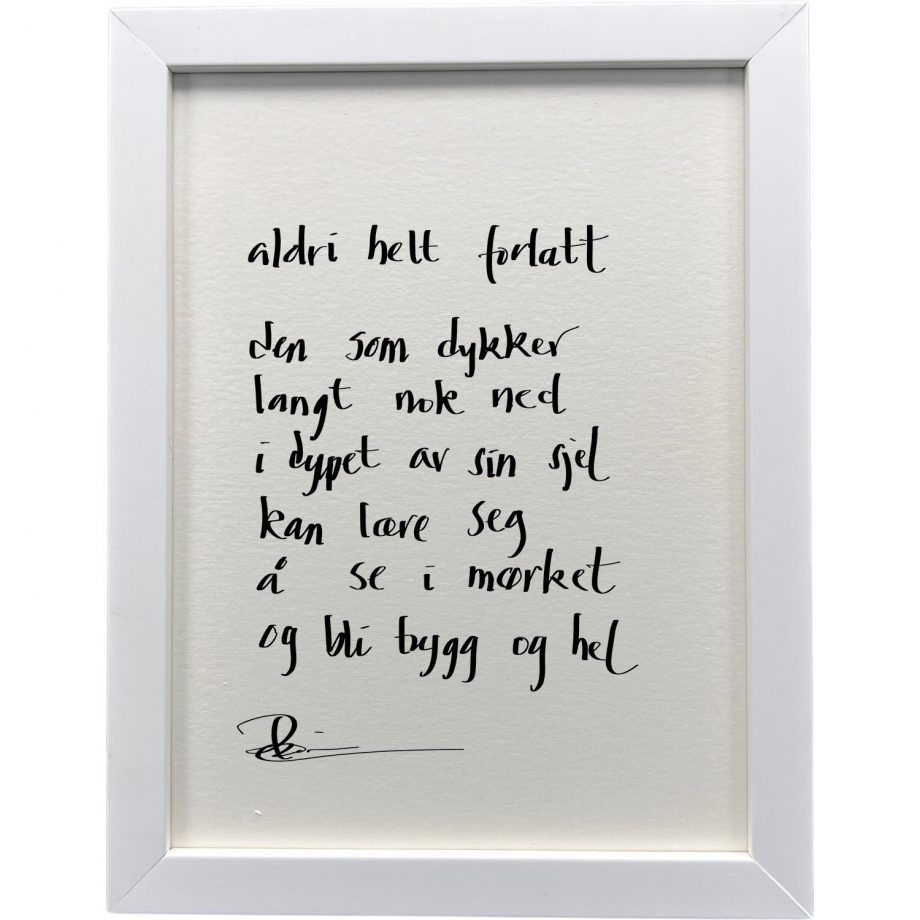 aldri helt forlatt
den som dykker
langt nok ned
i dypet av sin sjel
kan lære seg
å se i mørket
og bli trygg og hel